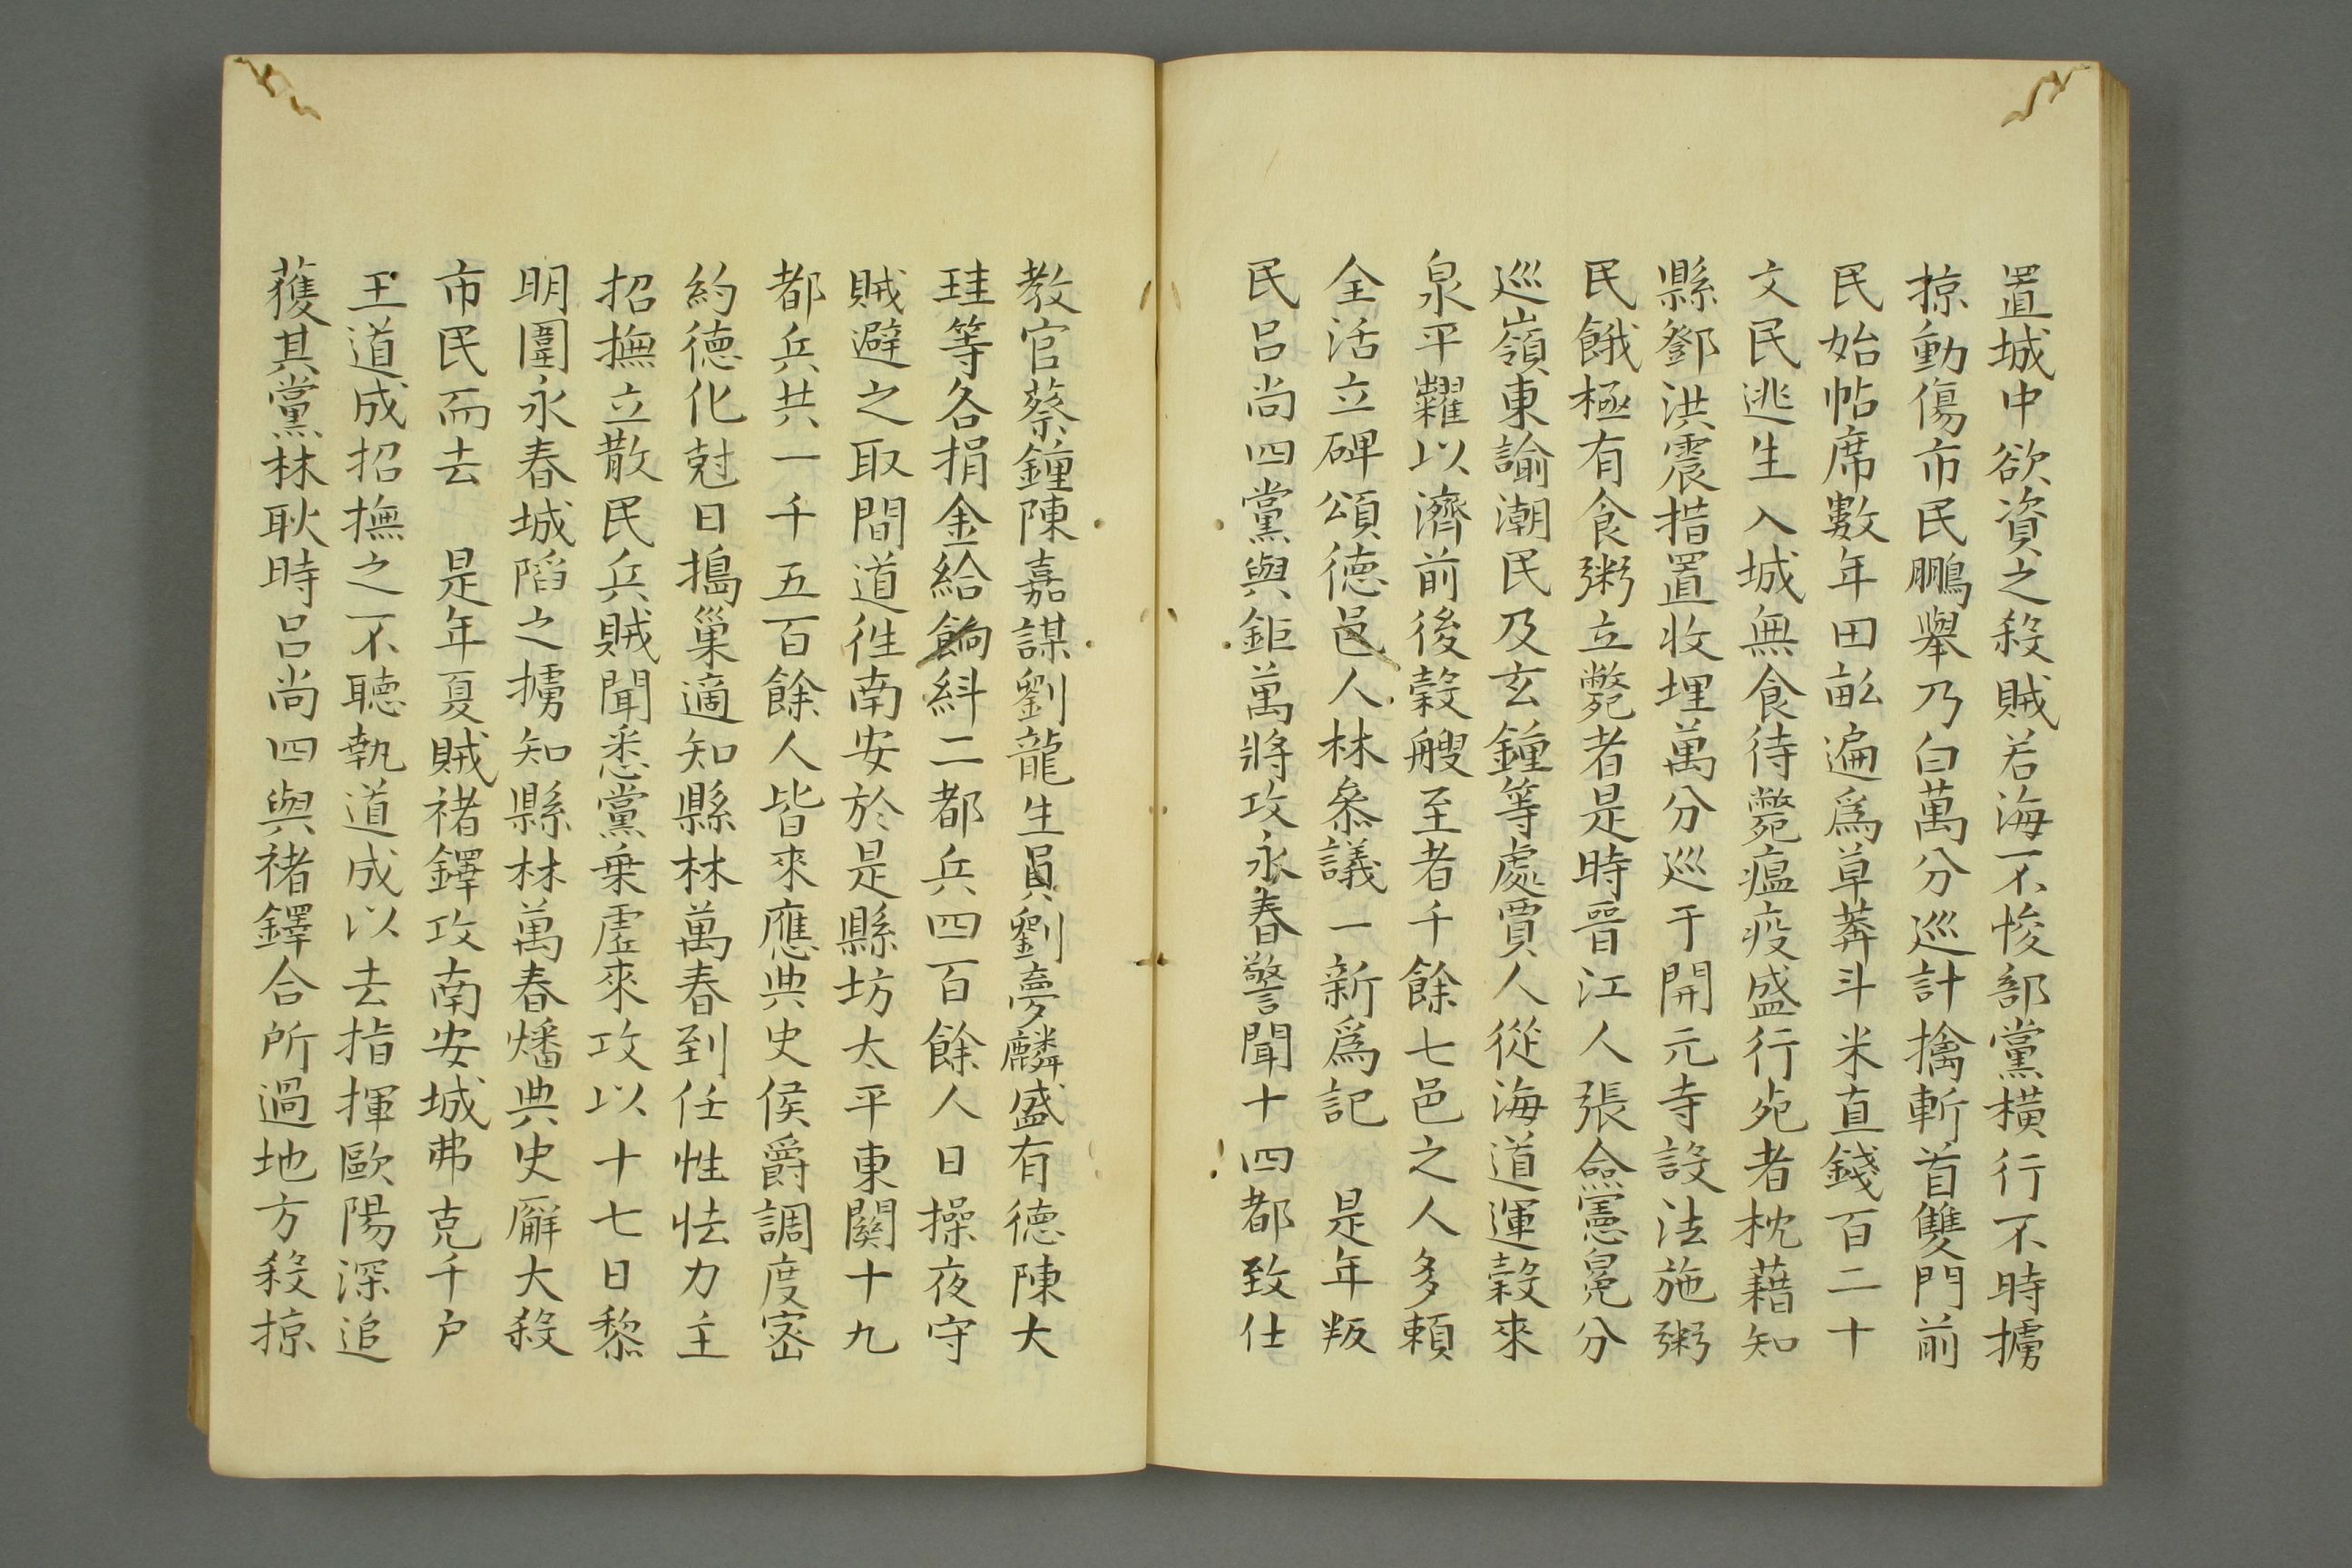 置城中欲資之殺賊若海不悛部黨橫行不時擄
掠動傷市民鵬舉乃白萬分巡計擒斬首雙門前
民始帖席數年田畝遍爲草莽斗米直錢百二十
文民逃生入城無食待斃瘟疫盛行死者枕藉知
縣鄧洪震措置收埋萬分巡于開元寺設法施粥
民餓極有食粥立斃者是時晉江人張僉憲冕分
巡嶺東諭潮民及玄鐘等處賈人從海道運穀來
泉平糶以濟前後穀艘至者千餘七邑之人多賴
全活立碑頌德邑人林叅議一新爲記　是年叛
民呂尚四黨與鉅萬將攻永春警聞十四都致仕
教官蔡鐘陳嘉謀劉龍生員劉夢麟盛有德陳大
珪等各捐金給餉糾二都兵四百餘人日操夜守
賊避之取間道徃南安於是縣坊太平東關十九
都兵共一千五百餘人皆來應典史侯爵調度密
約德化尅日搗巢適知縣林萬春到任性怯力主
招撫立散民兵賊聞悉黨乗虛來攻以十七日黎
明圍永春城陷之擄知縣林萬春燔典史廨大殺
市民而去　是年夏賊褚鐸攻南安城弗克千户
王道成招撫之不聽執道成以去指揮歐陽深追
獲其黨林耿時呂尚四與褚鐸合所過地方殺掠